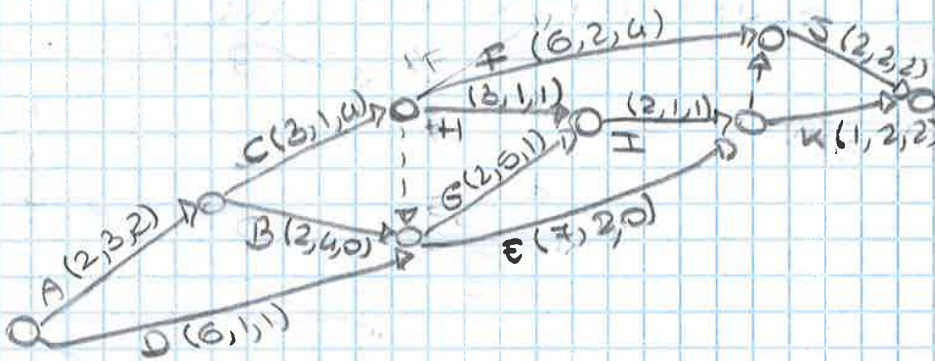 F (6,2,4)
J (2,2,2)
(3,1,1)
H
(2,1,1)
I
C(3,1,4)
K(1,2,2)
G(2,5,1)
B(2,4,0)
E (7,2,0)
A(2,3,2)
D(6,1,1)